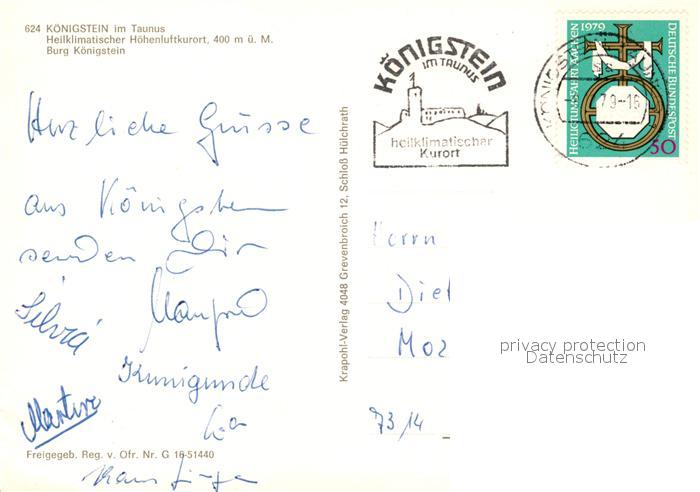 624 KÖNIGSTEIN im Taunus
Heilklimatischer Höhenluftkurort, 400 m ü. M.
Burg Königstein
Herzliche Grüsse
aus Königstein
senden Dir
Silvia
Manfred
Kunigunde
Martin
Freigegeb. Reg. v. Ofr. Nr. G 16-51440
Hans Jürgen
Krapohl-Verlag 4048 Grevenbroich 12, Schloß Hülchrath
KÖNIGSTEIN
IM TAUNUS
heilklimatischer
Kurort
HEILIGTUMSFAHRT AACHEN 1979
DEUTSCHE BUNDESPOST
50
Herrn
Diet
Moz
privacy protection
Datenschutz
7314